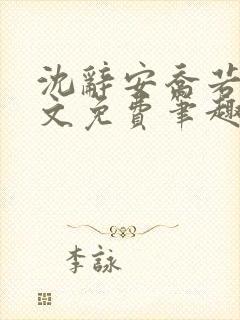 沈辭安喬若
文免費筆趣
李詠